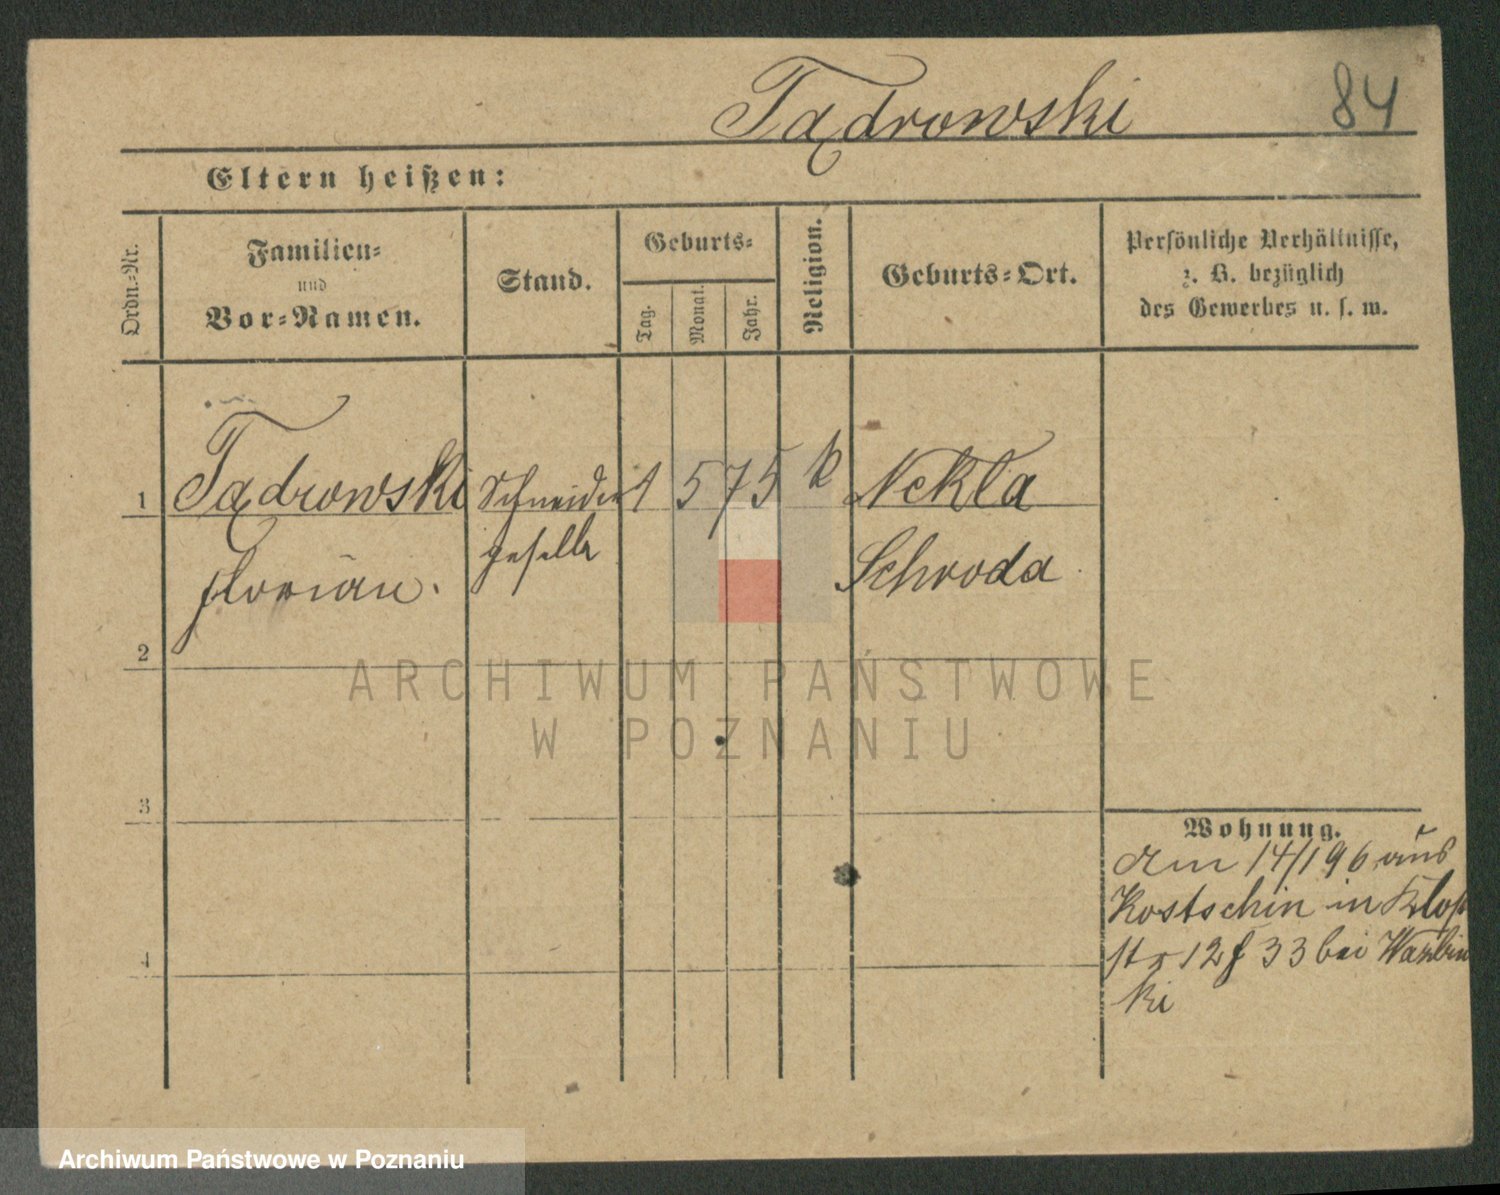 Tądrowski
84
Eltern heißen:
Ordn.-Nr.
Familien-
und
Vor-Namen.
Stand.
Geburts-
Tag.
Monat.
Jahr.
Religion.
Geburts-Ort.
Persönliche Verhältnisse,
z. B. bezüglich
des Gewerbes u. s. w.
1
Tądrowski
Schneider
1
5
75
k
Nekla
geselle
Schroda
florian.
2
ARCHIWUM PAŃSTWOWE
W POZNANIU
3
Wohnung.
am 14/1 96 aus
Kostschin in Klost
str 12 f 33 bei
ki
4
Archiwum Państwowe w Poznaniu